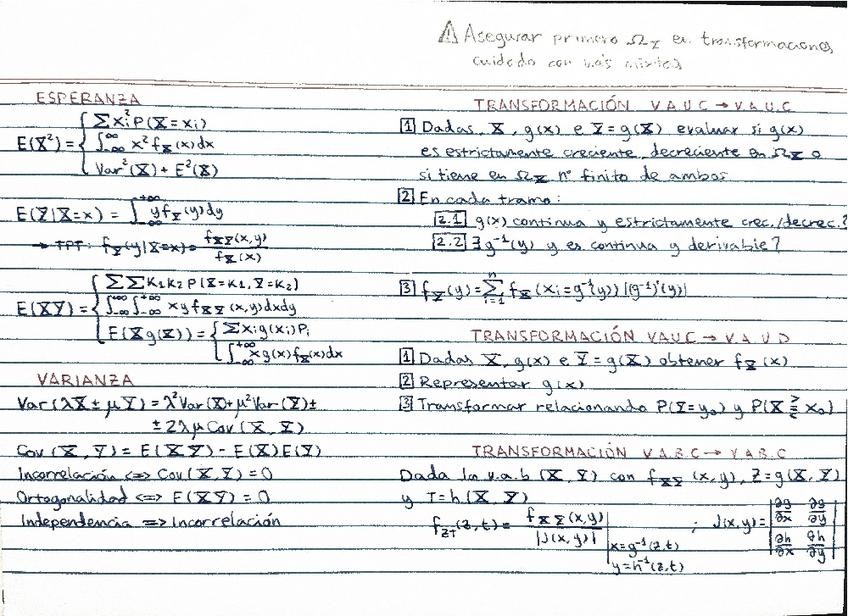 ⚠ Asegurar primero Ω_X en transformaciones,
cuidado con v.a.s mixtas
ESPERANZA
E(X²) = { Σ x_i² P(X=x_i)
∫_{-∞}^{∞} x² f_X(x) dx
Var²(X) + E²(X)
E(Y|X=x) = ∫_{-∞}^{+∞} y f_Y(y) dy
→ TPT: f_Y(y|X=x) = f_XY(x,y) / f_X(x)
E(XY) = { ΣΣ K₁K₂ P(X=K₁, Y=K₂)
∫_{-∞}^{+∞} ∫_{-∞}^{+∞} xy f_XY(x,y) dxdy
E(Xg(X)) = { Σ x_i g(x_i) P_i
∫_{-∞}^{+∞} x g(x) f_X(x) dx
VARIANZA
Var(λX ± μY) = λ² Var(X) + μ² Var(Y) ±
± 2λμ Cov(X, Y)
Cov(X, Y) = E(XY) - E(X)E(Y)
Incorrelación <=> Cov(X,Y) = 0
Ortogonalidad <=> E(XY) = 0
Independencia => Incorrelación
TRANSFORMACIÓN V.A.U.C → V.A.U.C
1 Dadas, X, g(x) e Y=g(X) evaluar si g(x)
es estrictamente creciente, decreciente en Ω_X o
si tiene en Ω_X nº finito de ambos
2 En cada tramo:
2.1 g(x) continua y estrictamente crec./decrec.?
2.2 ∃ g⁻¹(y) y es continua y derivable?
3 f_Y(y) = Σ_{i=1}^{n} f_X(x_i = g⁻¹(y)) |(g⁻¹)'(y)|
TRANSFORMACIÓN VAUC → V.A.U.D
1 Dadas X, g(x) e Y=g(X) obtener f_X(x)
2 Representar g(x)
3 Transformar relacionando P(Y=y₀) y P(X ≷ x₀)
TRANSFORMACIÓN V.A.B.C → V.A.B.C
Dada la v.a.b (X, Y) con f_XY(x,y), Z=g(X,Y)
y T=h(X, Y)
f_ZT(z,t) = f_XY(x,y) / |J(x,y)| | x=g⁻¹(z,t) y=h⁻¹(z,t) ; J(x,y) = | ∂g/∂x ∂g/∂y ∂h/∂x ∂h/∂y |